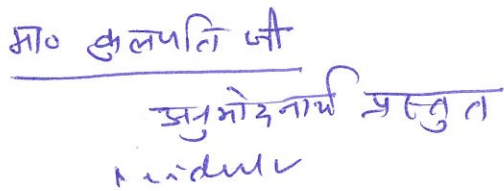 मा० कुलपति जी
अनुमोदनार्थ प्रस्तुत